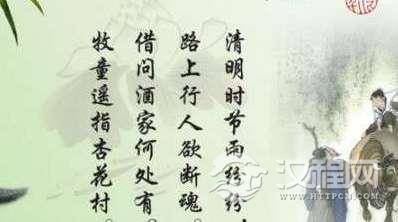 清明时节雨纷纷
路上行人欲断魂
借问酒家何处有
牧童遥指杏花村
汉程网
WWW.HTTPCN.COM